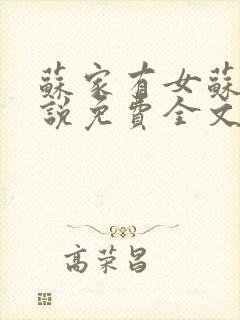 蘇家有女蘇
說免費全文
高荣昌